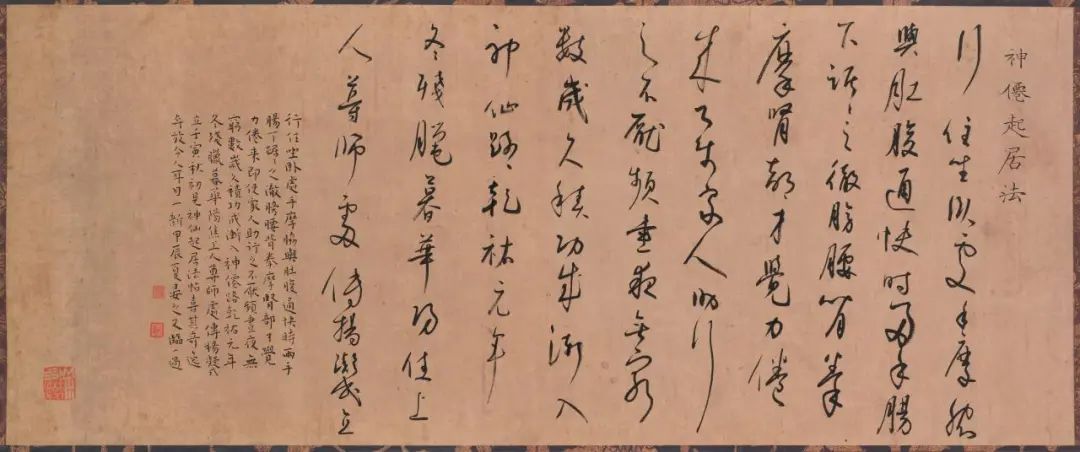 神僊起居法
行住坐臥處手摩脅
與肚腹通快時兩手腸
下踞〻之徹膀腰背拳
摩腎部才覺力倦
来即使家人助行
之不厭頻晝夜無窮
數歲久積功成漸入
神仙路乾祐元年
冬殘臘暮華陽焦上
人尊師處傳楊凝式
行住坐臥處手摩脅與肚腹通快時兩手
腸下踞〻之徹膀腰背拳摩腎部才覺
力倦来即使家人助行之不厭頻晝夜無
窮數歲久積功成漸入神僊路乾祐元年
冬殘臘暮華陽焦上人尊師處傳楊凝式
寅秋初見神仙起居法帖喜其奇逸
於今八年日一新甲辰夏之又臨一過